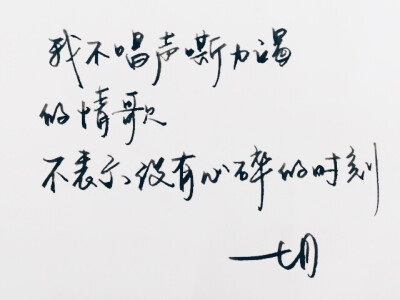 我不唱声嘶力竭
的情歌
不表示没有心碎的时刻
一七月